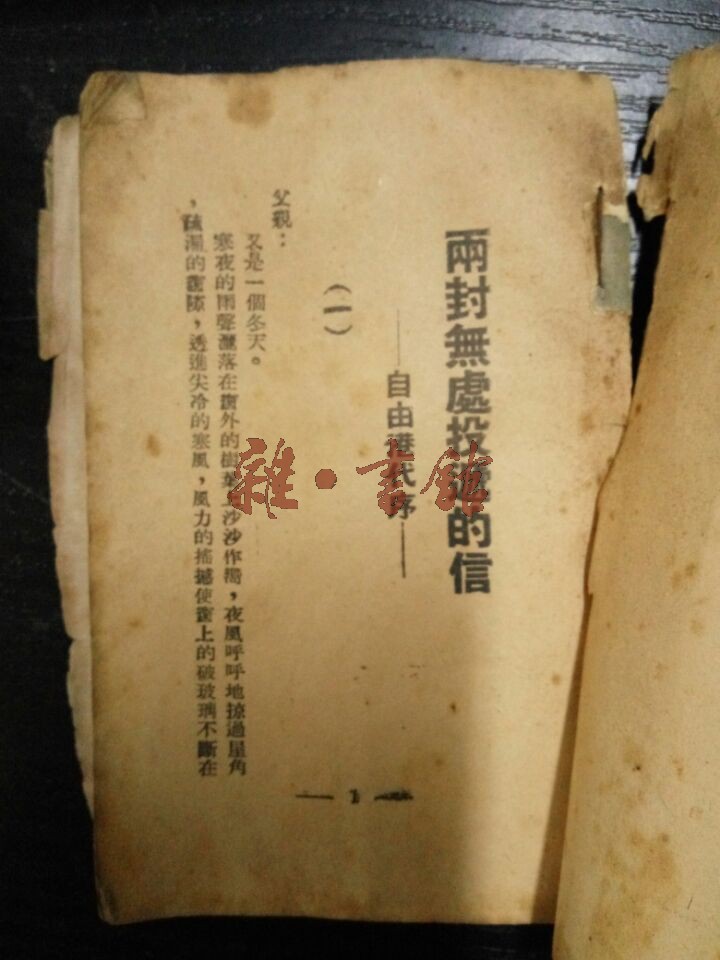 兩封無處投遞的信
——自由港代序——
(一)
父親：
又是一個冬天。
寒夜的雨聲灑落在窗外的樹葉上沙沙作響，夜風呼呼地掠過屋角
，疏漏的窗隙，透進尖冷的寒風，風力的搖撼使窗上的破玻璃不斷在
— 1 —
雜·書館